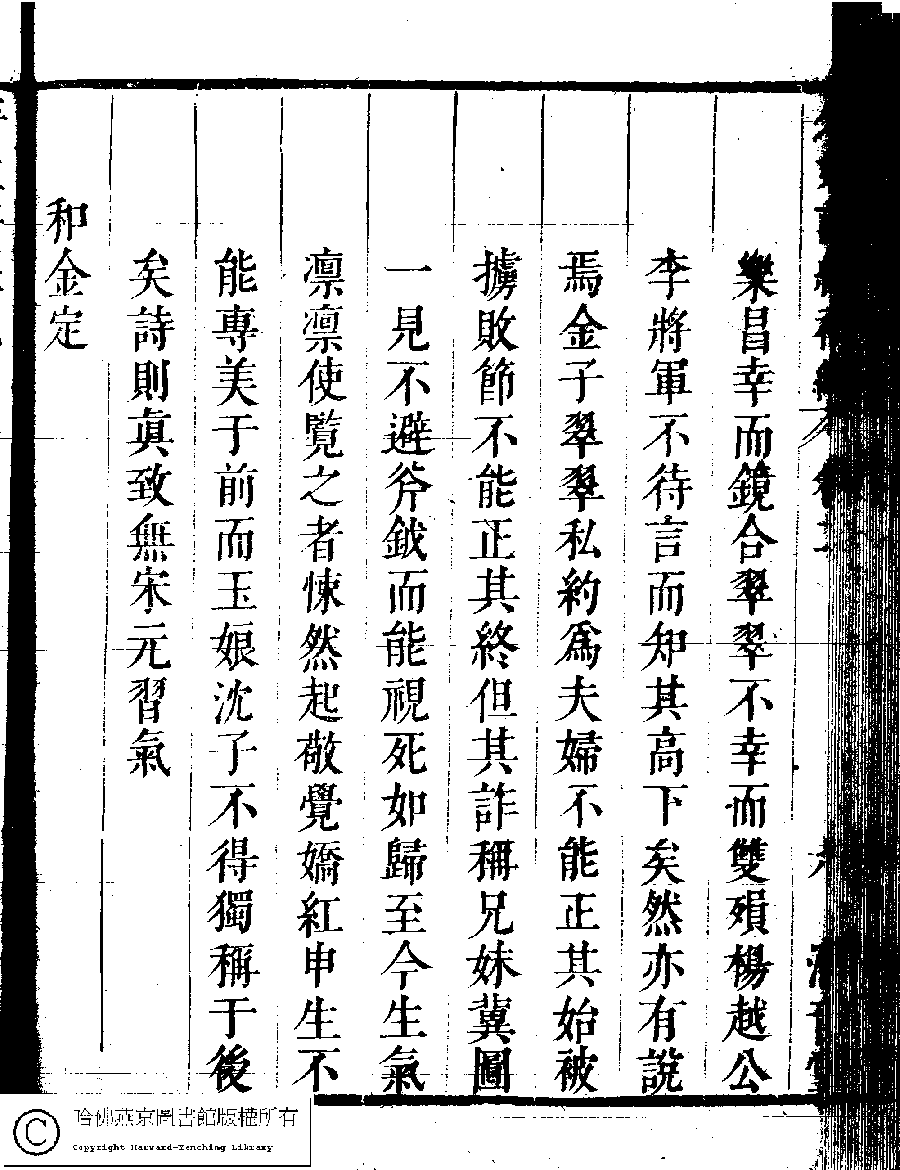 樂昌幸而鏡合翠翠不幸而雙殞楊越公
李將軍不待言而知其高下矣然亦有說
焉金子翠翠私約爲夫婦不能正其始被
擄敗節不能正其終但其詐稱兄妹冀圖
一見不避斧鉞而能視死如歸至今生氣
凛凛使覧之者悚然起敬覺嬌紅申生不
能專美于前而玉娘沈子不得獨稱于後
矣詩則眞致無宋元習氣
和金定
哈佛燕京圖書館版權所有
Copyright Harvard-Yenching Library